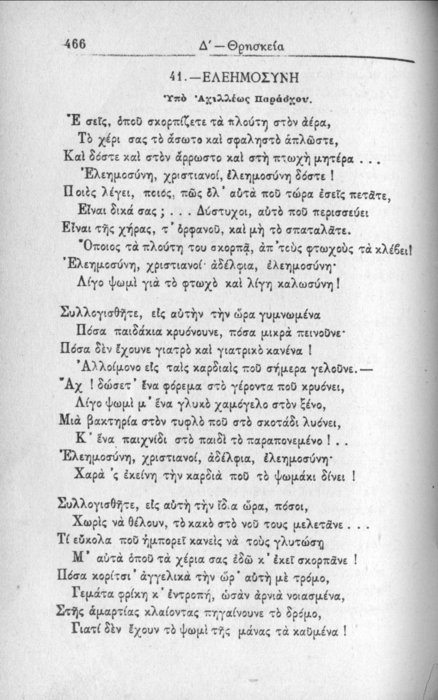 466
Δ΄ — Θρησκεία
41.—ΕΛΕΗΜΟΣΥΝΗ
Ὑπὸ Ἀχιλλέως Παράσχου.
Ἐσεῖς, ὁποῦ σκορπίζετε τὰ πλούτη στὸν ἀέρα,
Τὸ χέρι σας τὸ ἄσωτο καὶ σφαληστὸ ἁπλῶστε,
Καὶ δόστε καὶ στὸν ἄρρωστο καὶ στὴ πτωχὴ μητέρα . . .
Ἐλεημοσύνη, χριστιανοί, ἐλεημοσύνη δόστε !
Ποιὸς λέγει, ποιός, πῶς ὅλ’ αὐτὰ ποῦ τώρα ἐσεῖς πετᾶτε,
Εἶναι δικά σας ; . . . Δύστυχοι, αὐτὸ ποῦ περισσεύει
Εἶναι τῆς χήρας, τ’ ὀρφανοῦ, καὶ μὴ τὸ σπαταλᾶτε.
Ὅποιος τὰ πλούτη του σκορπᾷ, ἀπ’ τοὺς φτωχοὺς τὰ κλέβει!
Ἐλεημοσύνη, χριστιανοί· ἀδέλφια, ἐλεημοσύνη·
Λίγο ψωμὶ γιὰ τὸ φτωχὸ καὶ λίγη καλωσύνη!
Συλλογισθῆτε, εἰς αὐτὴν τὴν ὥρα γυμνωμένα
Πόσα παιδάκια κρυόνουνε, πόσα μικρὰ πεινοῦνε·
Πόσα δὲν ἔχουνε γιατρὸ καὶ γιατρικὸ κανένα !
Ἀλλοίμονο εἰς ταὶς καρδιαὶς ποῦ σήμερα γελοῦνε.—
Ἄχ ! δώσετ’ ἕνα φόρεμα στὸ γέροντα ποῦ κρυόνει,
Λίγο ψωμὶ μ’ ἕνα γλυκὸ χαμόγελο στὸν ξένο,
Μιὰ βακτηρία στὸν τυφλὸ ποῦ στὸ σκοτάδι λυόνει,
Κ’ ἕνα παιχνίδι στὸ παιδὶ τὸ παραπονεμένο ! . .
Ἐλεημοσύνη, χριστιανοί, ἀδέλφια, ἐλεημοσύνη·
Χαρὰ ’ς ἐκείνη τὴν καρδιὰ ποῦ τὸ ψωμάκι δίνει !
Συλλογισθῆτε, εἰς αὐτὴ τὴν ἴδια ὥρα, πόσοι,
Χωρὶς νὰ θέλουν, τὸ κακὸ στὸ νοῦ τους μελετᾶνε . . .
Τί εὔκολα ποῦ ἠμπορεῖ κανεὶς νὰ τοὺς γλυτώσῃ
Μ’ αὐτὰ ὁποῦ τὰ χέρια σας ἐδῶ κ’ ἐκεῖ σκορπᾶνε !
Πόσα κορίτσι’ ἀγγελικὰ τὴν ὥρ’ αὐτὴ μὲ τρόμο,
Γεμάτα φρίκη κ’ ἐντροπή, ὡσὰν ἀρνιὰ νοιασμένα,
Στῆς ἁμαρτίας κλαίοντας πηγαίνουνε τὸ δρόμο,
Γιατὶ δὲν ἔχουν τὸ ψωμὶ τῆς μάνας τὰ καϋμένα !